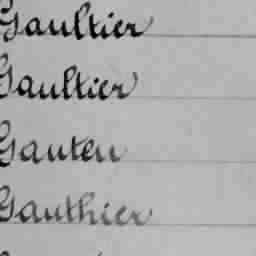 Gaultier
Gaultier
Gauten
Gauthier